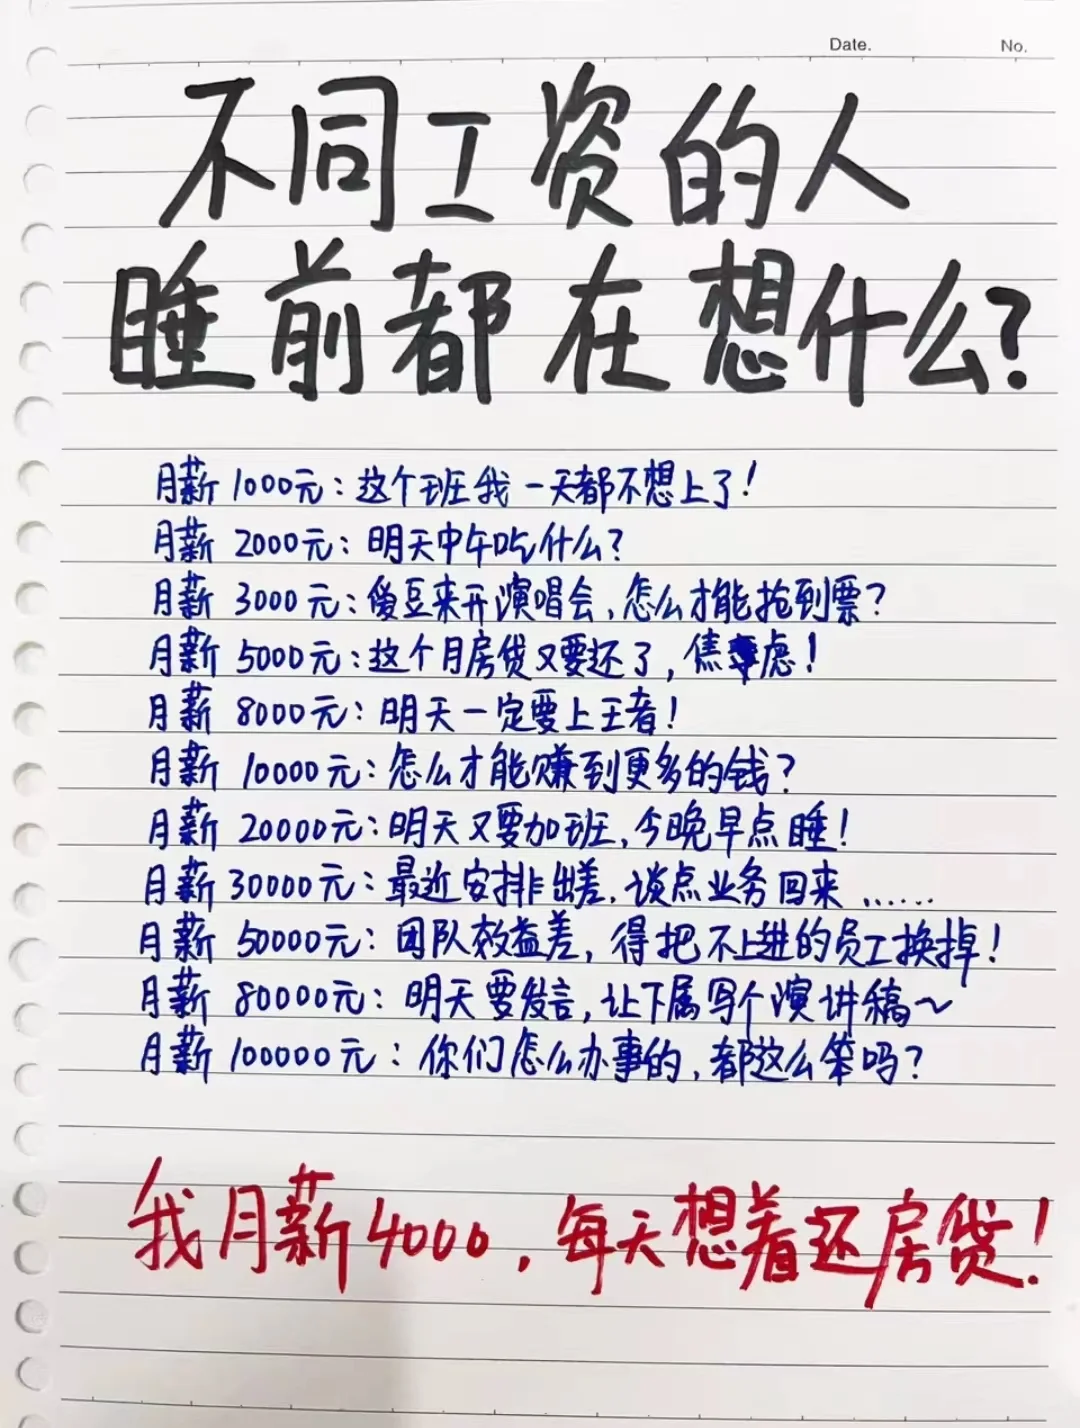 Date.
No.
不同工资的人
睡前都在想什么?
月薪 1000元：这个班我一天都不想上了！
月薪 2000元：明天中午吃什么？
月薪 3000元：傻豆来开演唱会，怎么才能抢到票？
月薪 5000元：这个月房贷又要还了，焦虑！
月薪 8000元：明天一定要上王者！
月薪 10000元：怎么才能赚到更多的钱？
月薪 20000元：明天又要加班，今晚早点睡！
月薪 30000元：最近安排出差，谈点业务回来……
月薪 50000元：团队效益差，得把不上进的员工换掉！
月薪 80000元：明天要发言，让下属写个演讲稿～
月薪 100000元：你们怎么办事的，都这么笨吗？
我月薪4000，每天想着还房贷！